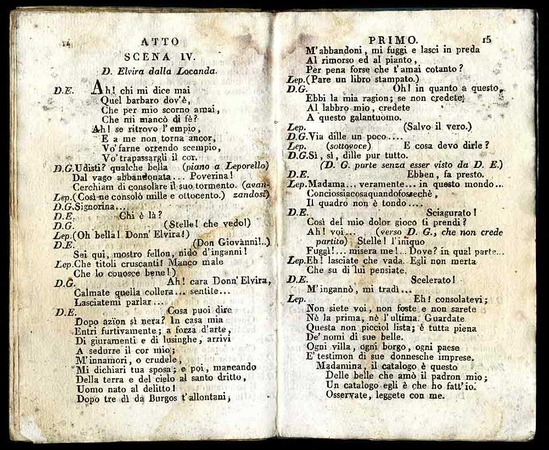 14
ATTO
SCENA IV.
D. Elvira dalla Locanda.
D.E. Ah! chi mi dice mai
Quel barbaro dov'è,
Che per mio scorno amai,
Che mi mancò di fè?
Ah! se ritrovo l'empio,
E a me non torna ancor,
Vo'farne orrendo scempio,
Vo'trapassargli il cor.
D.G. Udisti? qualche bella (piano a Leporello)
Dal vago abbandonata... Poverina!
Cerchiam di consolare il suo tormento. (avan-
Lep. (Così ne consolò mille e ottocento.) zandosi)
D.G. Signorina...
D.E. Chi è là?
D.G. (Stelle! che vedo!)
Lep. (Oh bella! Donn'Elvira!)
D.E. (Don Giovanni!..)
Sei qui, mostro fellon, nido d'inganni!
Lep. Che titoli cruscanti! Manco male
Che lo conosce bene!)
D.G. Ah! cara Donn'Elvira,
Calmate quella collera... sentite...
Lasciatemi parlar...
D.E. Cosa puoi dire
Dopo azïon sì nera? In casa mia
Entri furtivamente; a forza d'arte,
Di giuramenti e di lusinghe, arrivi
A sedurre il cor mio;
M'innamori, o crudele,
Mi dichiari tua sposa; e poi, mancando
Della terra e del cielo al santo dritto,
Uomo nato al delitto!
Dopo tre dì da Burgos t'allontani,
PRIMO.
15
M'abbandoni, mi fuggi e lasci in preda
Al rimorso ed al pianto,
Per pena forse che t'amai cotanto?
Lep. (Pare un libro stampato.)
D.G. Oh! in quanto a questo,
Ebbi la mia ragion; se non credete,
Al labbro mio, credete
A questo galantuomo.
Lep. (Salvo il vero.)
D.G. Via dille un poco....
Lep. (sottovoce) E cosa devo dirle?
D.G. Sì, sì, dille pur tutto.
(D. G. parte senza esser visto da D. E.)
D.E. Ebben, fa presto.
Lep. Madama... veramente... in questo mondo...
Conciossiacosaquandofosseche,
Il quadro non è tondo....
D.E. Sciagurato!
Così del mio dolor gioco ti prendi?
Ah! voi... (verso D. G., che non crede
partito) Stelle! l'iniquo
Fuggì!... misera me!.. Dove? in qual parte...
Lep. Eh! lasciate che vada. Egli non merta
Che su di lui pensiate.
D.E. Scelerato!
M'ingannò, mi tradì...
Lep. Eh! consolatevi;
Non siete voi, non foste e non sarete
Nè la prima, nè l'ultima. Guardate
Questa non picciol lista; è tutta piena
De' nomi di sue belle.
Ogni villa, ogni borgo, ogni paese
E' testimon di sue donnesche imprese.
Madamina, il catalogo è questo
Delle belle che amò il padron mio;
Un catalogo egli è che ho fatt'io.
Osservate, leggete con me.